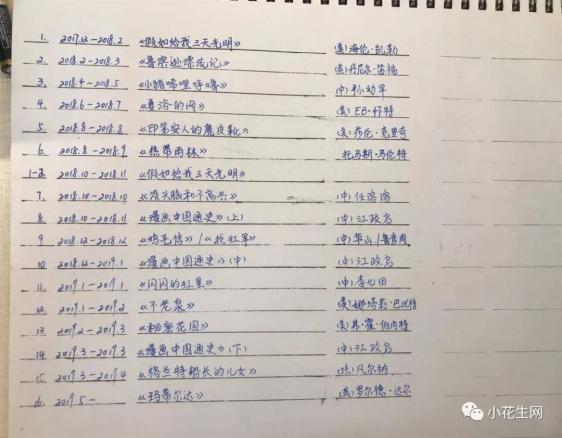 1. 2017.12-2018.2 《假如给我三天光明》 (美)海伦·凯勒
2. 2018.2-2018.3 《鲁滨逊漂流记》 (英)丹尼尔·笛福
3. 2018.4-2018.5 《小猪唏哩呼噜》 (中)孙幼军
4. 2018.6-2018.7 《夏洛的网》 (美)EB·怀特
5. 2018.8-2018.8 《印第安人的麂皮靴》 (美)莎伦·克里奇
6. 2018.8-2018.9 《热带雨林》 托马斯·马伦特
1-2. 2018.10-2018.11 《假如给我三天光明》
7. 2018.10-2018.10 《没头脑和不高兴》 (中)任溶溶
8. 2018.10-2018.11 《漫画中国通史》(上) (中)江政名
9 2018.12-2018.12 《鸡毛信》/《找红军》 (中)华山/鲁彦周
10 2018.12-2019.1 《漫画中国通史》(中) (中)江政名
11. 2019.1-2019.1 《闪闪的红星》 (中)李心田
12. 2019.1-2019.2 《不老泉》 (美)娜塔莉·巴比特
13. 2019.2-2019.3 《秘密花园》 (美)弗·霍·伯内特
14. 2019.3-2019.3 《漫画中国通史》(下) (中)江政名
15. 2019.3-2019.4 《格兰特船长的儿女》 (法)凡尔纳
16. 2019.5- 《玛蒂尔达》 (英)罗尔德·达尔
小花生网